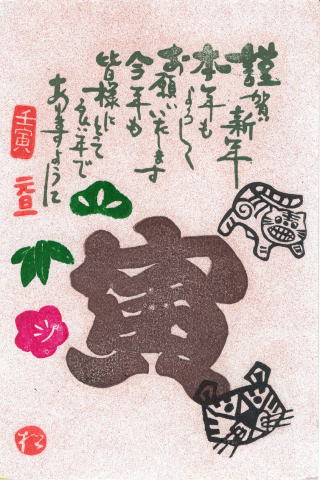 謹賀新年
本年もよろしく
お願いいたします
今年も
皆様にとって
良い年で
ありますように
壬寅
元旦
寅